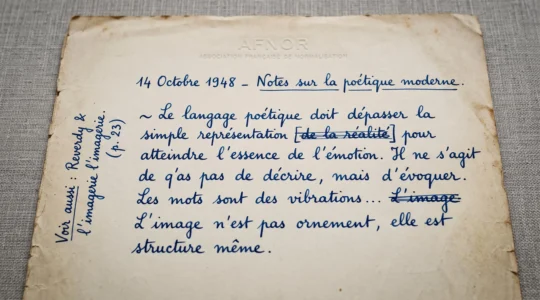 AFNOR
ASSOCIATION FRANÇAISE DE NORMALISATION
14 Octobre 1948 – Notes sur la poétique moderne.
~ Le langage poétique doit dépasser la
simple représentation [de la réalité] pour
atteindre l'essence de l'émotion. Il ne s'agit
de q'as pas de décrire, mais d'évoquer.
Les mots sont des vibrations... L'image
L'image n'est pas ornement, elle est
structure même.
Voir aussi : Reverdy &
l'imagerie l'imagerie.
(p. 23)